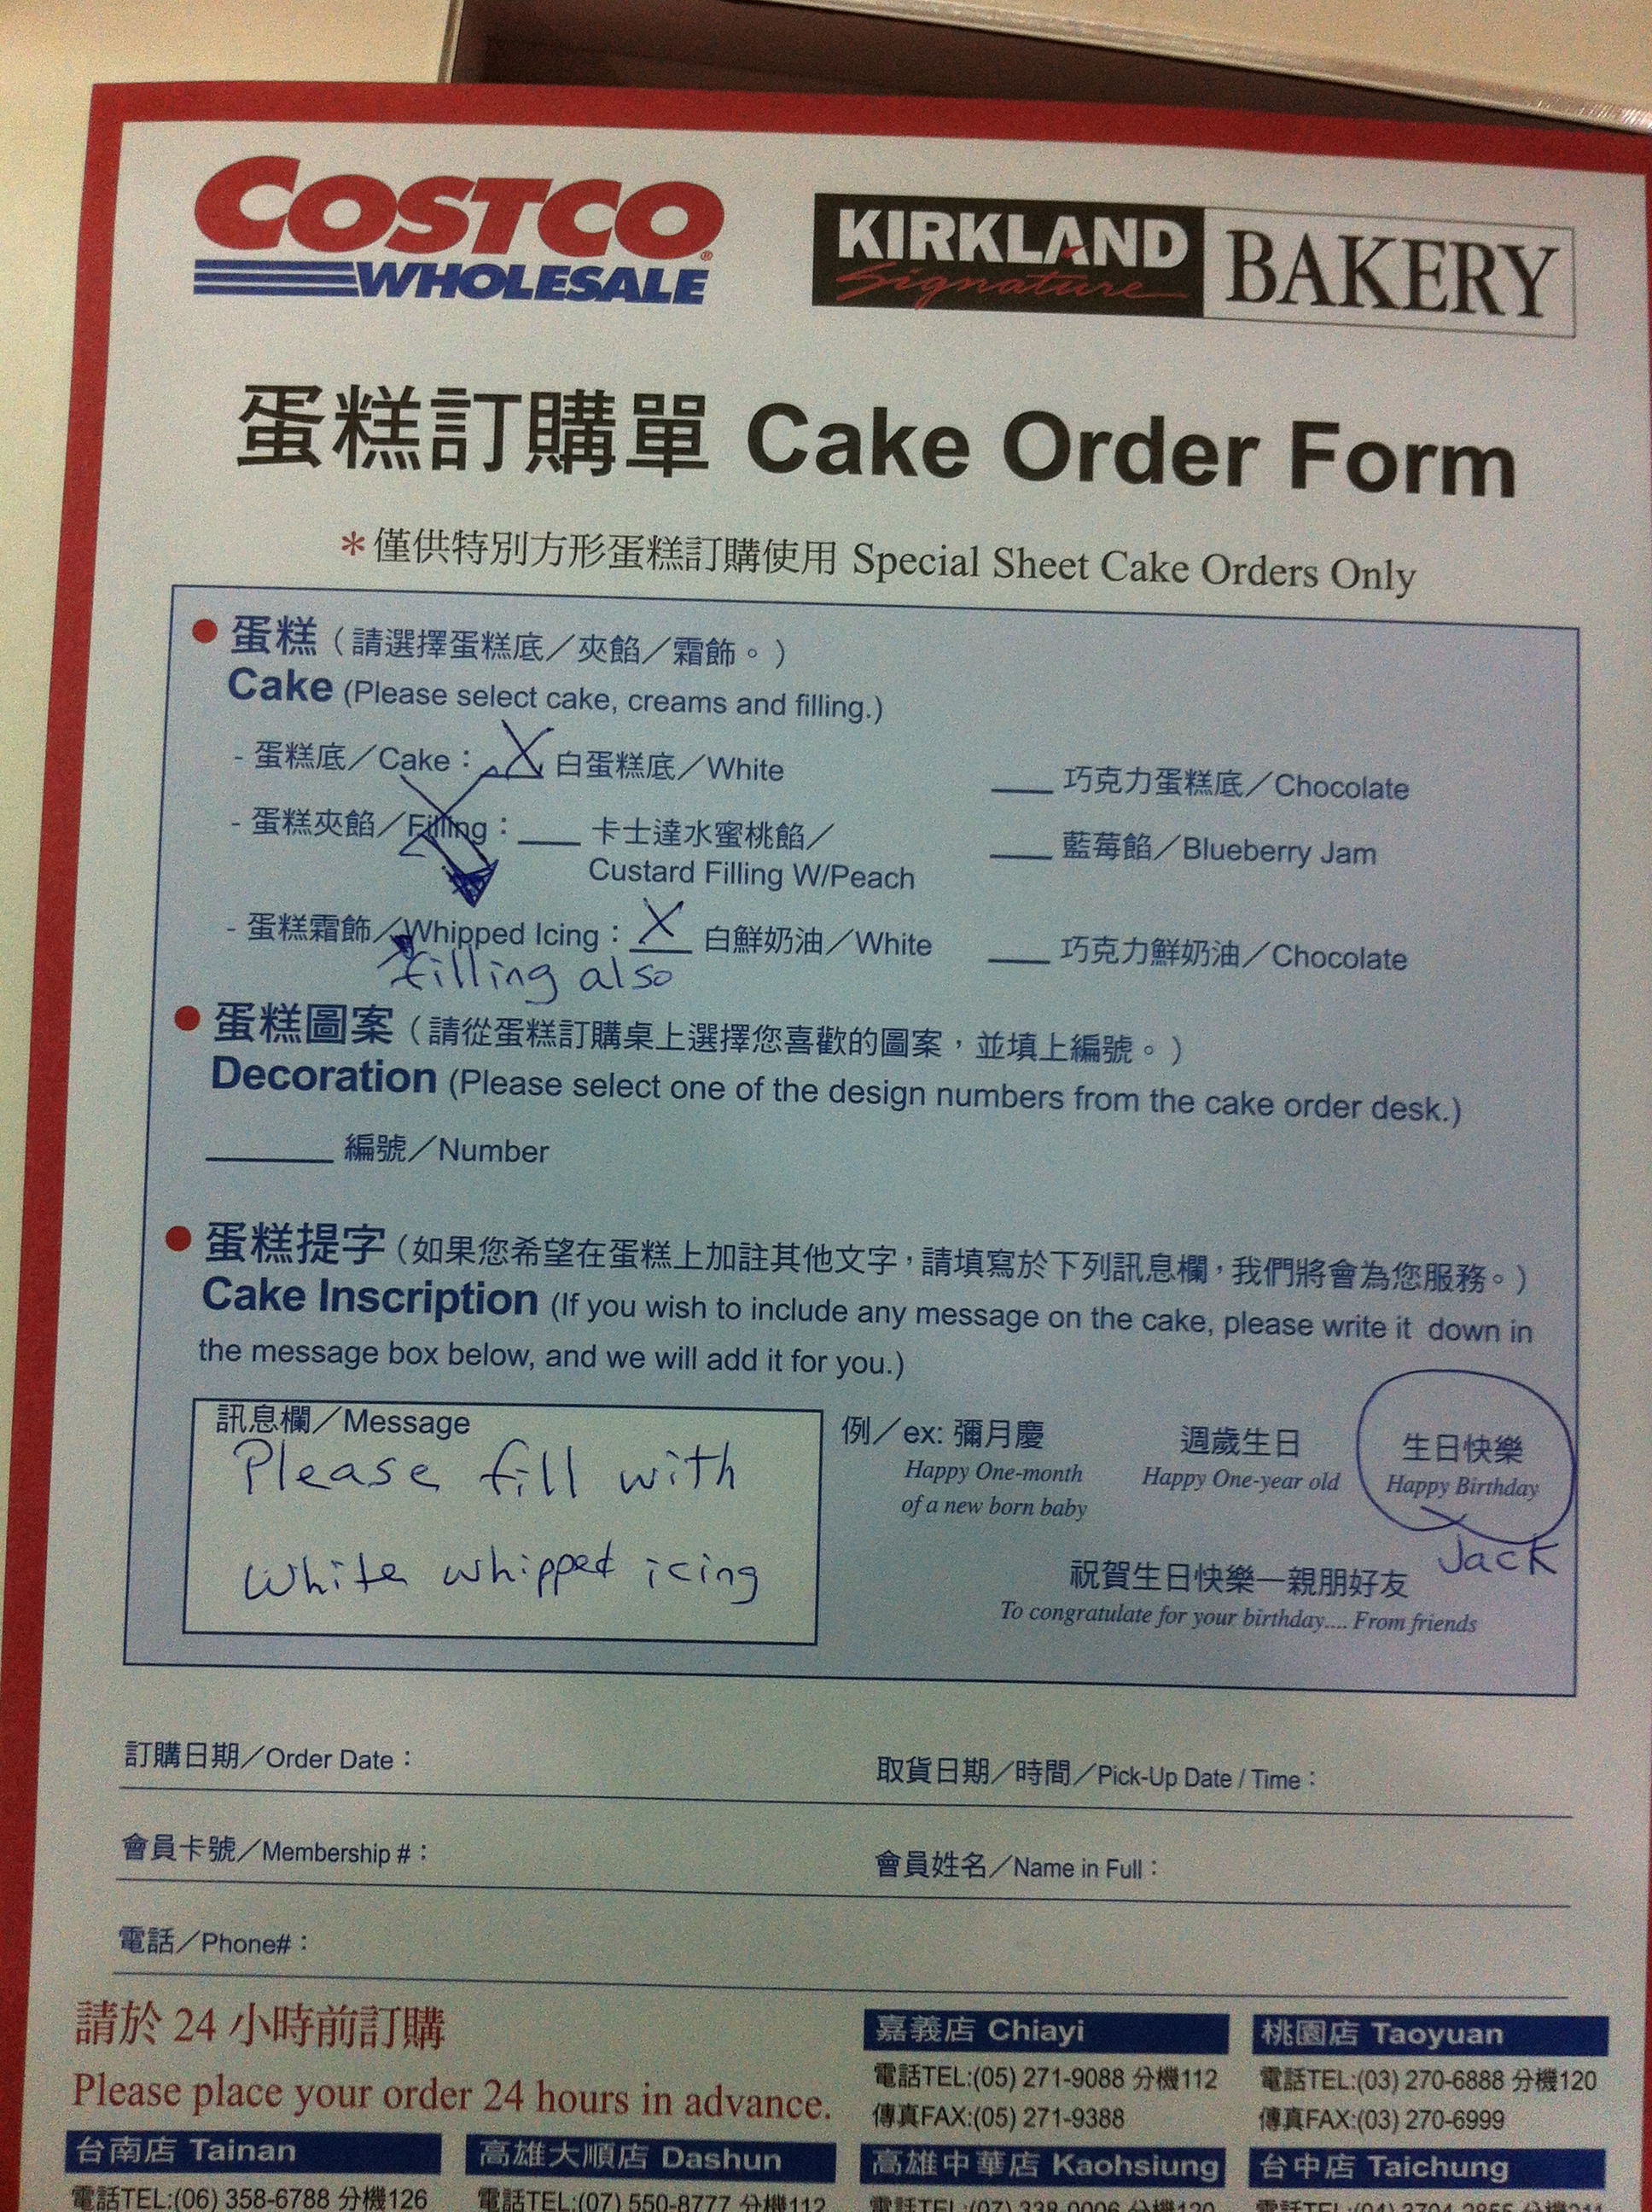 COSTCO
WHOLESALE
KIRKLAND
Signature
BAKERY
蛋糕訂購單 Cake Order Form
*僅供特別方形蛋糕訂購使用 Special Sheet Cake Orders Only
● 蛋糕（請選擇蛋糕底／夾餡／霜飾。）
Cake (Please select cake, creams and filling.)
- 蛋糕底／Cake： X 白蛋糕底／White ___ 巧克力蛋糕底／Chocolate
- 蛋糕夾餡／Filling：___ 卡士達水蜜桃餡／ ___ 藍莓餡／Blueberry Jam
Custard Filling W/Peach
- 蛋糕霜飾／Whipped Icing： X 白鮮奶油／White ___ 巧克力鮮奶油／Chocolate
filling also
● 蛋糕圖案（請從蛋糕訂購桌上選擇您喜歡的圖案，並填上編號。）
Decoration (Please select one of the design numbers from the cake order desk.)
______ 編號／Number
● 蛋糕提字（如果您希望在蛋糕上加註其他文字，請填寫於下列訊息欄，我們將會為您服務。）
Cake Inscription (If you wish to include any message on the cake, please write it down in
the message box below, and we will add it for you.)
訊息欄／Message
Please fill with
White whipped icing
例／ex: 彌月慶 週歲生日 生日快樂
Happy One-month Happy One-year old Happy Birthday
of a new born baby
Jack
祝賀生日快樂—親朋好友
To congratulate for your birthday.... From friends
訂購日期／Order Date： 取貨日期／時間／Pick-Up Date / Time：
會員卡號／Membership #： 會員姓名／Name in Full：
電話／Phone#：
請於 24 小時前訂購
Please place your order 24 hours in advance.
嘉義店 Chiayi
電話TEL:(05) 271-9088 分機112
傳真FAX:(05) 271-9388
桃園店 Taoyuan
電話TEL:(03) 270-6888 分機120
傳真FAX:(03) 270-6999
台南店 Tainan
電話TEL:(06) 358-6788 分機126
高雄大順店 Dashun
電話TEL:(07) 550-8777 分機112
高雄中華店 Kaohsiung
電話TEL:(07)
台中店 Taichung
電話TEL:(04)